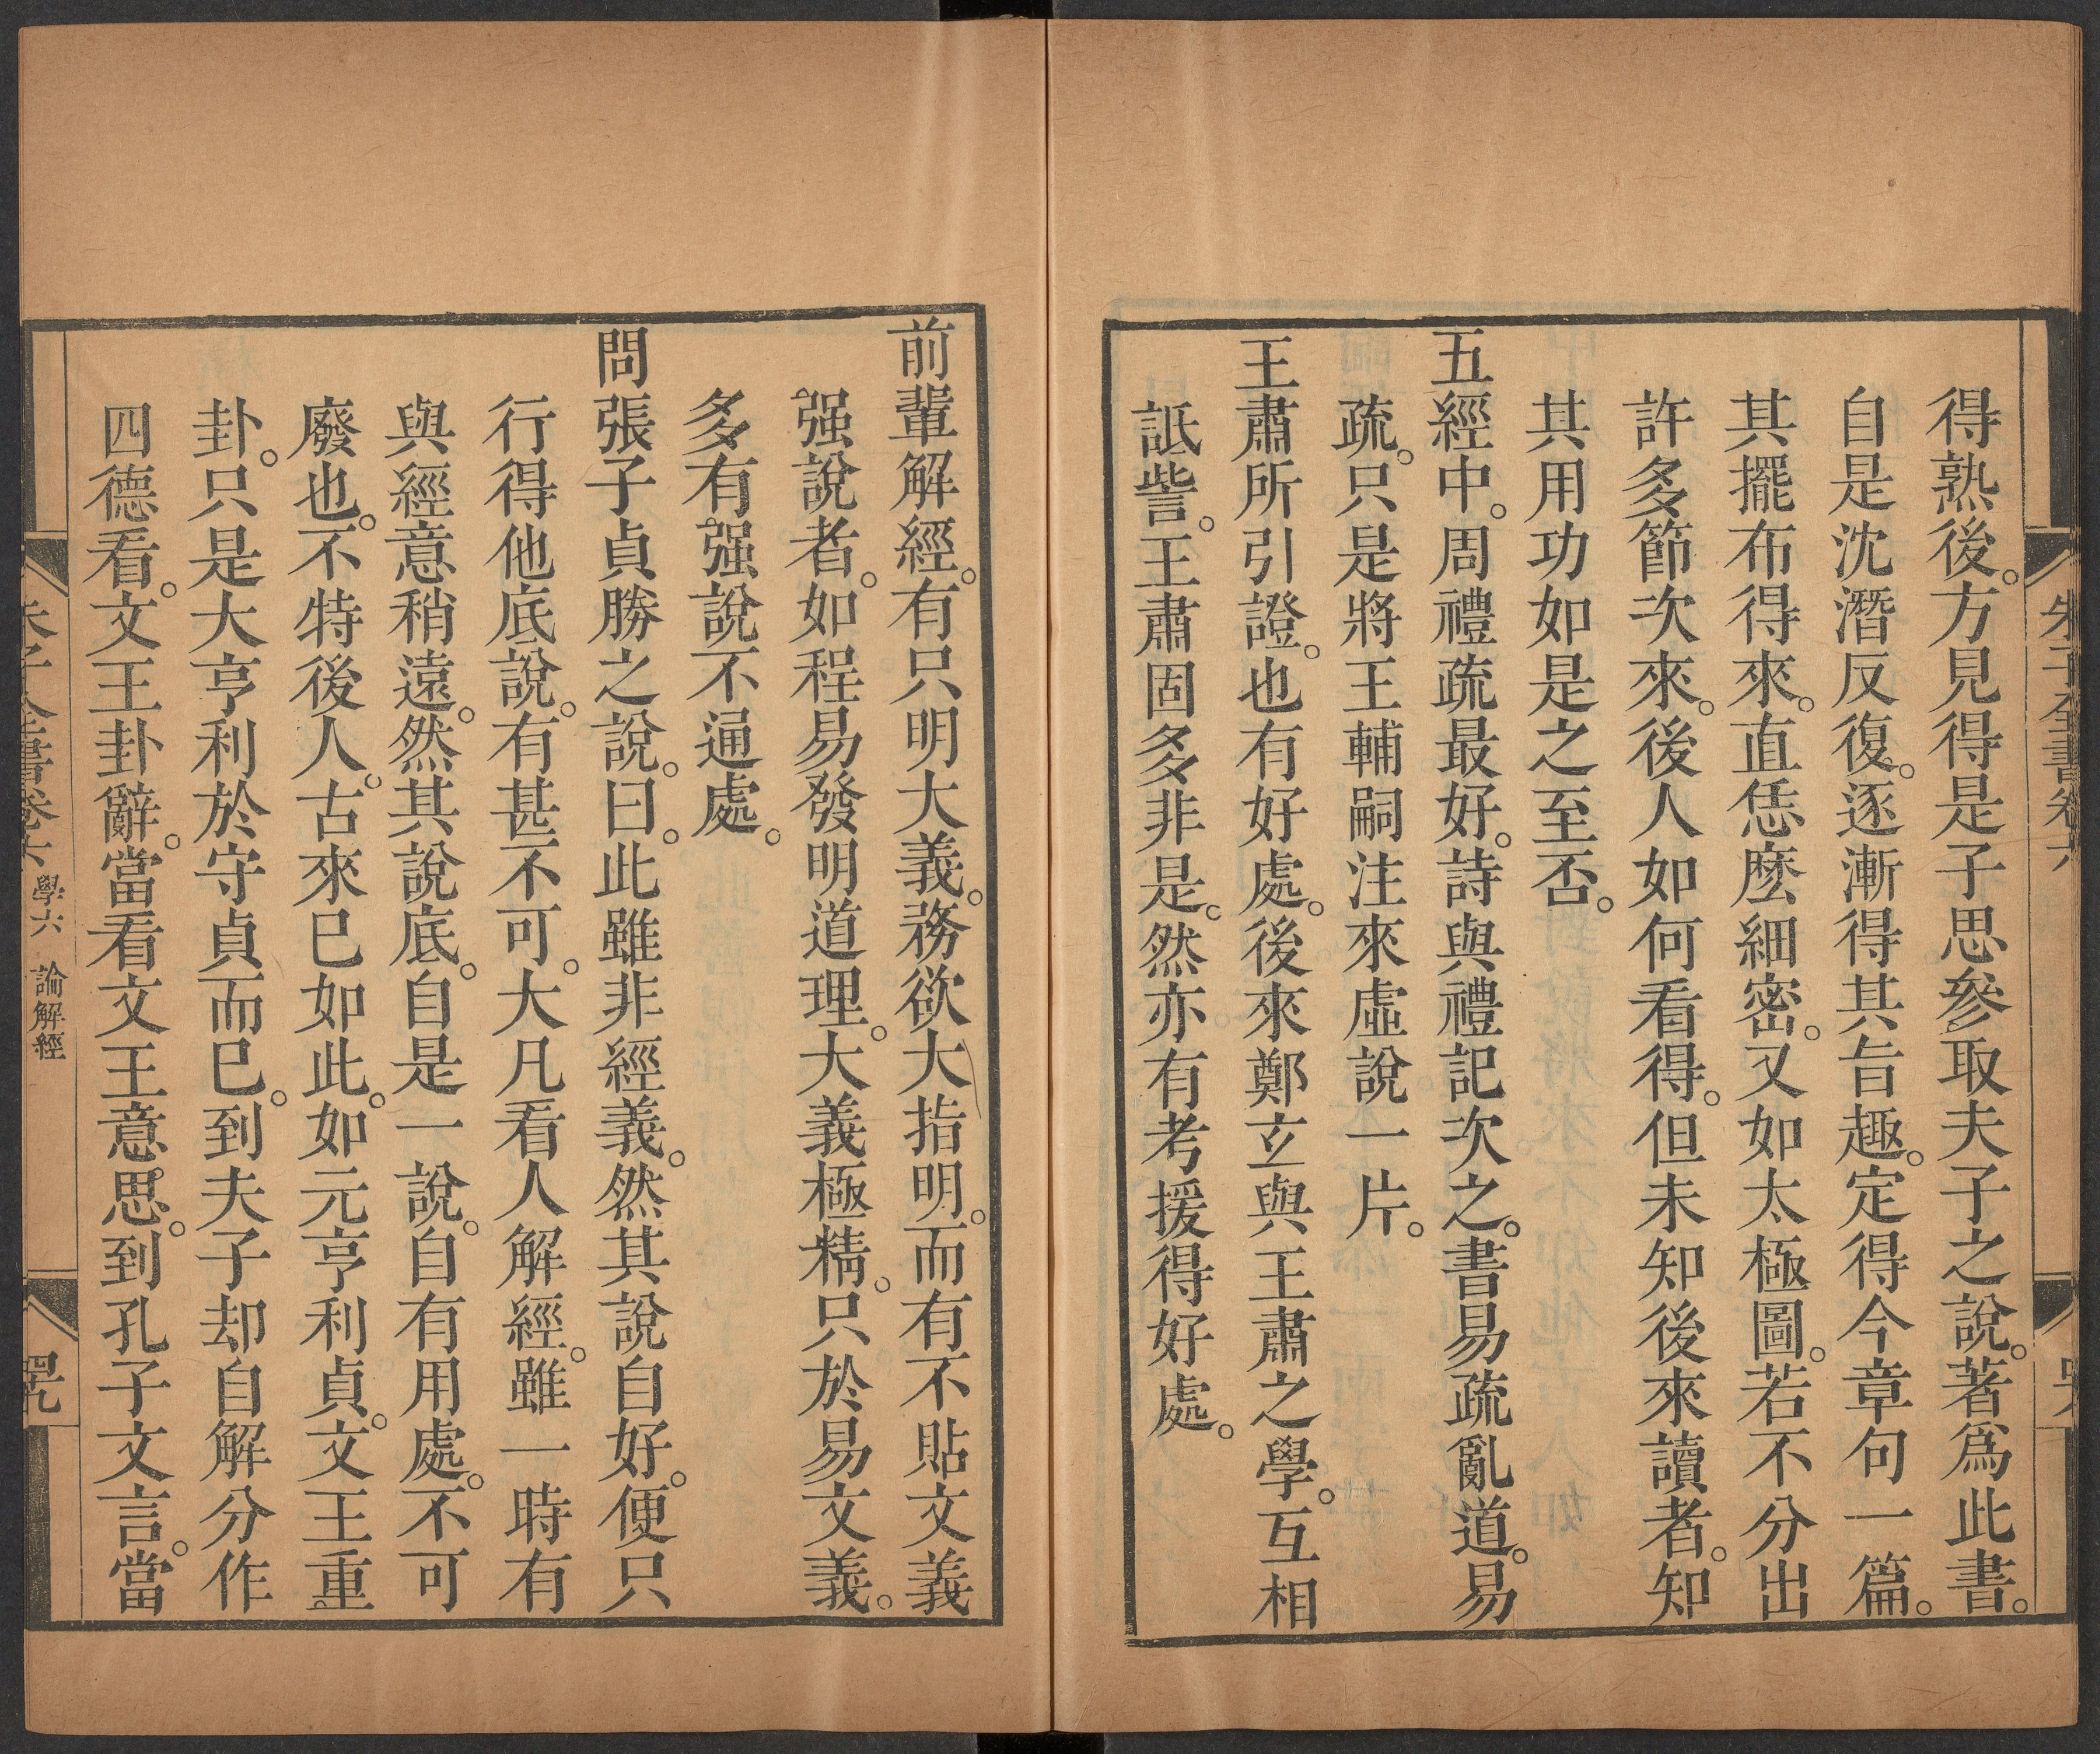 得熟後。方見得是子思參取夫子之說。著爲此書。
自是沈潛反復。逐漸得其旨趣。定得今章句一篇。
其擺布得來。直恁麽細密。又如太極圖。若不分出
許多節次來。後人如何看得。但未知後來讀者。知
其用功如是之至否。
五經中。周禮疏最好。詩與禮記次之。書易疏亂道。易
疏。只是將王輔嗣注來虛說一片。
王肅所引證。也有好處。後來鄭玄與王肅之學。互相
詆訾。王肅固多非是。然亦有考援得好處。
前輩解經。有只明大義。務欲大指明。而有不貼文義
强說者。如程易發明道理。大義極精。只於易文義。
多有强說不通處。
問張子貞勝之說。曰。此雖非經義。然其說自好。便只
行得他底說。有甚不可。大凡看人解經。雖一時有
與經意稍遠。然其說底。自是一說。自有用處。不可
廢也。不特後人。古來已如此。如元亨利貞。文王重
卦。只是大亨利於守貞而已。到夫子却自解分作
四德看。文王卦辭。當看文王意思。到孔子文言。當
朱子全書卷六 學六 論解經
四九